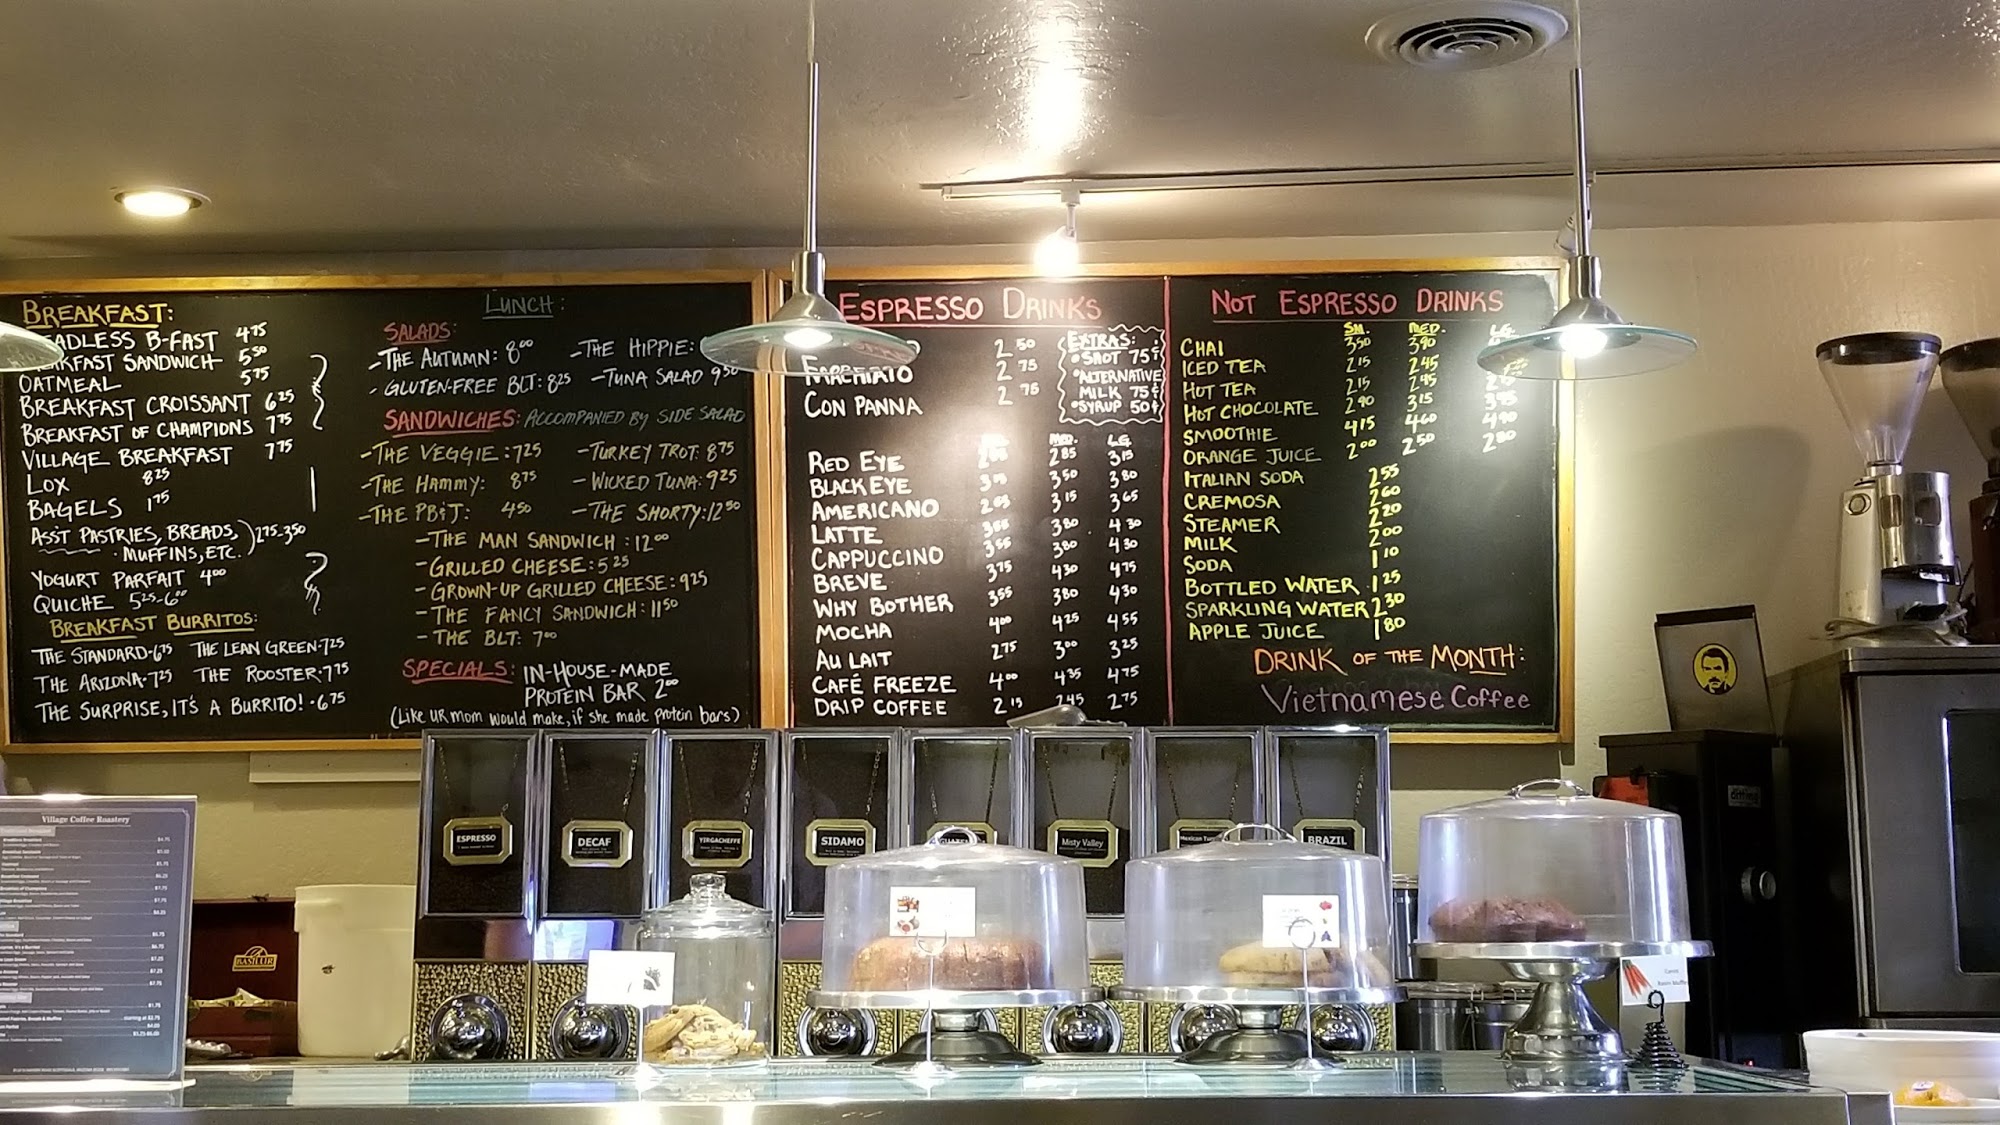 BREAKFAST:
B-FAST 4.75
SANDWICH 5.50
OATMEAL 5.75
BREAKFAST CROISSANT 6.25
BREAKFAST OF CHAMPIONS 7.75
VILLAGE BREAKFAST 7.75
LOX 8.25
BAGELS 1.75
ASS'T PASTRIES, BREADS, MUFFINS, ETC. 2.75-3.50
YOGURT PARFAIT 4.00
QUICHE 5.25-6.00
BREAKFAST BURRITOS:
THE STANDARD-6.75 THE LEAN GREEN-7.25
THE ARIZONA-7.25 THE ROOSTER-7.75
THE SURPRISE, IT'S A BURRITO!-6.75
LUNCH:
SALADS:
-THE AUTUMN: 8.00 -THE HIPPIE:
-GLUTEN-FREE BLT: 8.25 -TUNA SALAD 9.50
SANDWICHES: ACCOMPANIED BY SIDE SALAD
-THE VEGGIE: 7.25 -TURKEY TROT: 8.75
-THE HAMMY: 8.75 -WICKED TUNA: 9.25
-THE PB&J: 4.50 -THE SHORTY: 12.50
-THE MAN SANDWICH: 12.00
-GRILLED CHEESE: 5.25
-GROWN-UP GRILLED CHEESE: 9.25
-THE FANCY SANDWICH: 11.50
-THE BLT: 7.00
SPECIALS: IN-HOUSE-MADE
PROTEIN BAR 2.00
(Like UR mom would make, if she made protein bars)
ESPRESSO DRINKS
2.50
MACHIATO 2.75
CON PANNA 2.75
EXTRAS:
•SHOT 75¢
•ALTERNATIVE
MILK 75¢
•SYRUP 50¢
MED. LG.
RED EYE 2.85 3.15
BLACK EYE 3.50 3.80
AMERICANO 3.15 3.65
LATTE 3.55 3.80 4.30
CAPPUCCINO 3.55 3.80 4.30
BREVE 3.75 4.30 4.75
WHY BOTHER 3.55 3.80 4.30
MOCHA 4.00 4.25 4.55
AU LAIT 2.75 3.00 3.25
CAFÉ FREEZE 4.00 4.35 4.75
DRIP COFFEE 2.15 2.45 2.75
NOT ESPRESSO DRINKS
SM. MED. LG.
CHAI 3.50 3.90
ICED TEA 2.15 2.45
HOT TEA 2.15 2.45
HOT CHOCOLATE 2.90 3.15 3.95
SMOOTHIE 4.15 4.60 4.90
ORANGE JUICE 2.00 2.50 2.80
ITALIAN SODA 2.55
CREMOSA 2.60
STEAMER 2.20
MILK 2.00
SODA 1.10
BOTTLED WATER 1.25
SPARKLING WATER 2.30
APPLE JUICE 1.80
DRINK OF THE MONTH:
Vietnamese Coffee
ESPRESSO
DECAF
YIRGACHEFFE
SIDAMO
Misty Valley
BRAZIL
Village Coffee Roastery
BASILUR
Carrot
Raisin Muffin